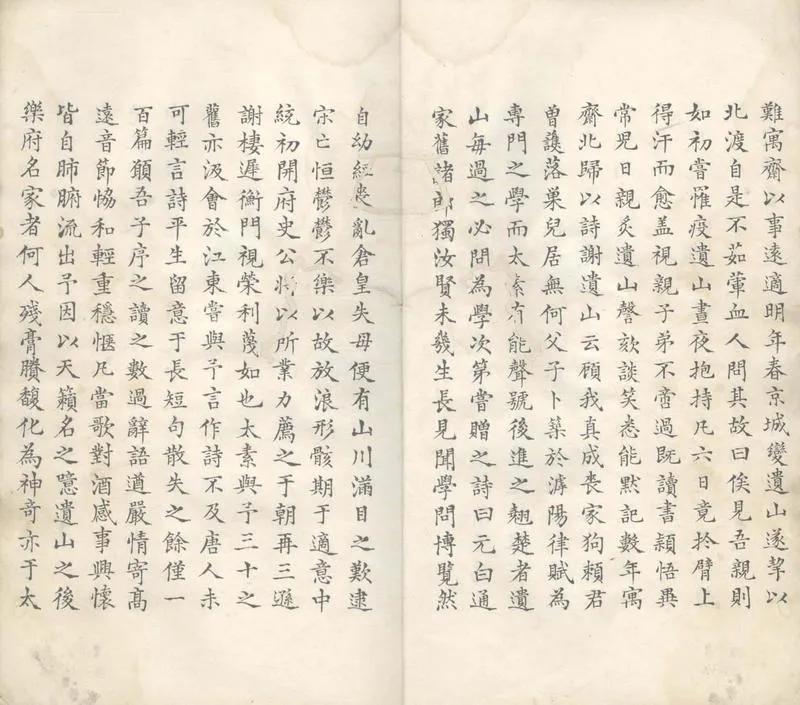 難寓齋以事遠適明年春京城變遺山遂挈以
北渡自是不茹葷血人問其故曰俟見吾親則
如初嘗罹疫遺山晝夜抱持凡六日竟於臂上
得汗而愈盖視親子弟不啻過既讀書穎悟異
常兒日親炙遺山謦欬談笑悉能默記數年寓
齋北歸以詩謝遺山云顧我真成丧家狗賴君
曽護落巢兒居無何父子卜築於滹陽律賦為
專門之學而太素有能聲號後進之翹楚者遺
山每過之必問為學次第嘗贈之詩曰元白通
家舊諸郎獨汝賢未㡬生長見聞學問博覽然
自幼經喪亂倉皇失母便有山川滿目之歎逮
宋亡恒鬱鬱不樂以故放浪形骸期于適意中
統初開府史公将以所業力薦之于朝再三遜
謝棲遲衡門視榮利蔑如也太素與予三十之
舊亦汲會於江東嘗與予言作詩不及唐人未
可輕言詩平生留意于長短句散失之餘僅一
百篇願吾子序之讀之數過辭語遒嚴情寄髙
遠音節協和輕重穩愜凡當歌對酒感事興懷
皆自肺腑流出予因以天籟名之噫遺山之後
樂府名家者何人殘膏賸馥化為神奇亦于太